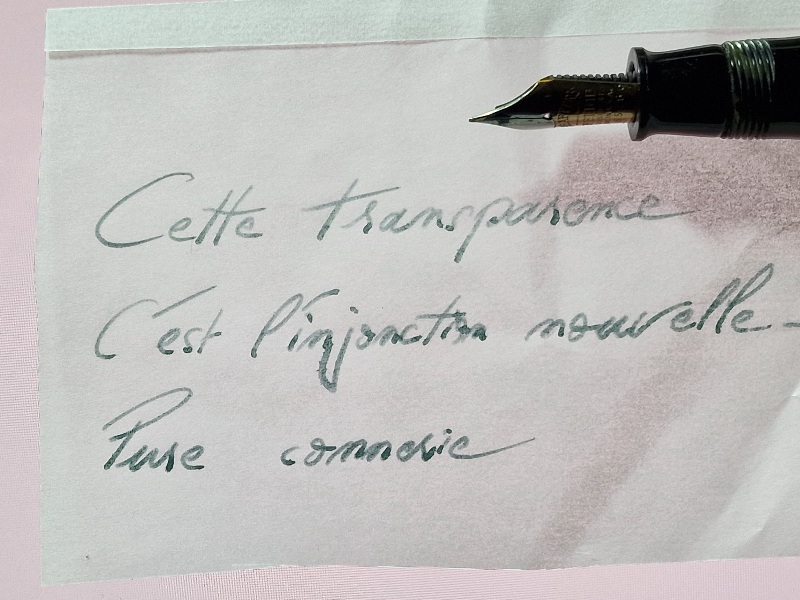 Cette transparence
C'est l'injonction nouvelle -
Pure connerie